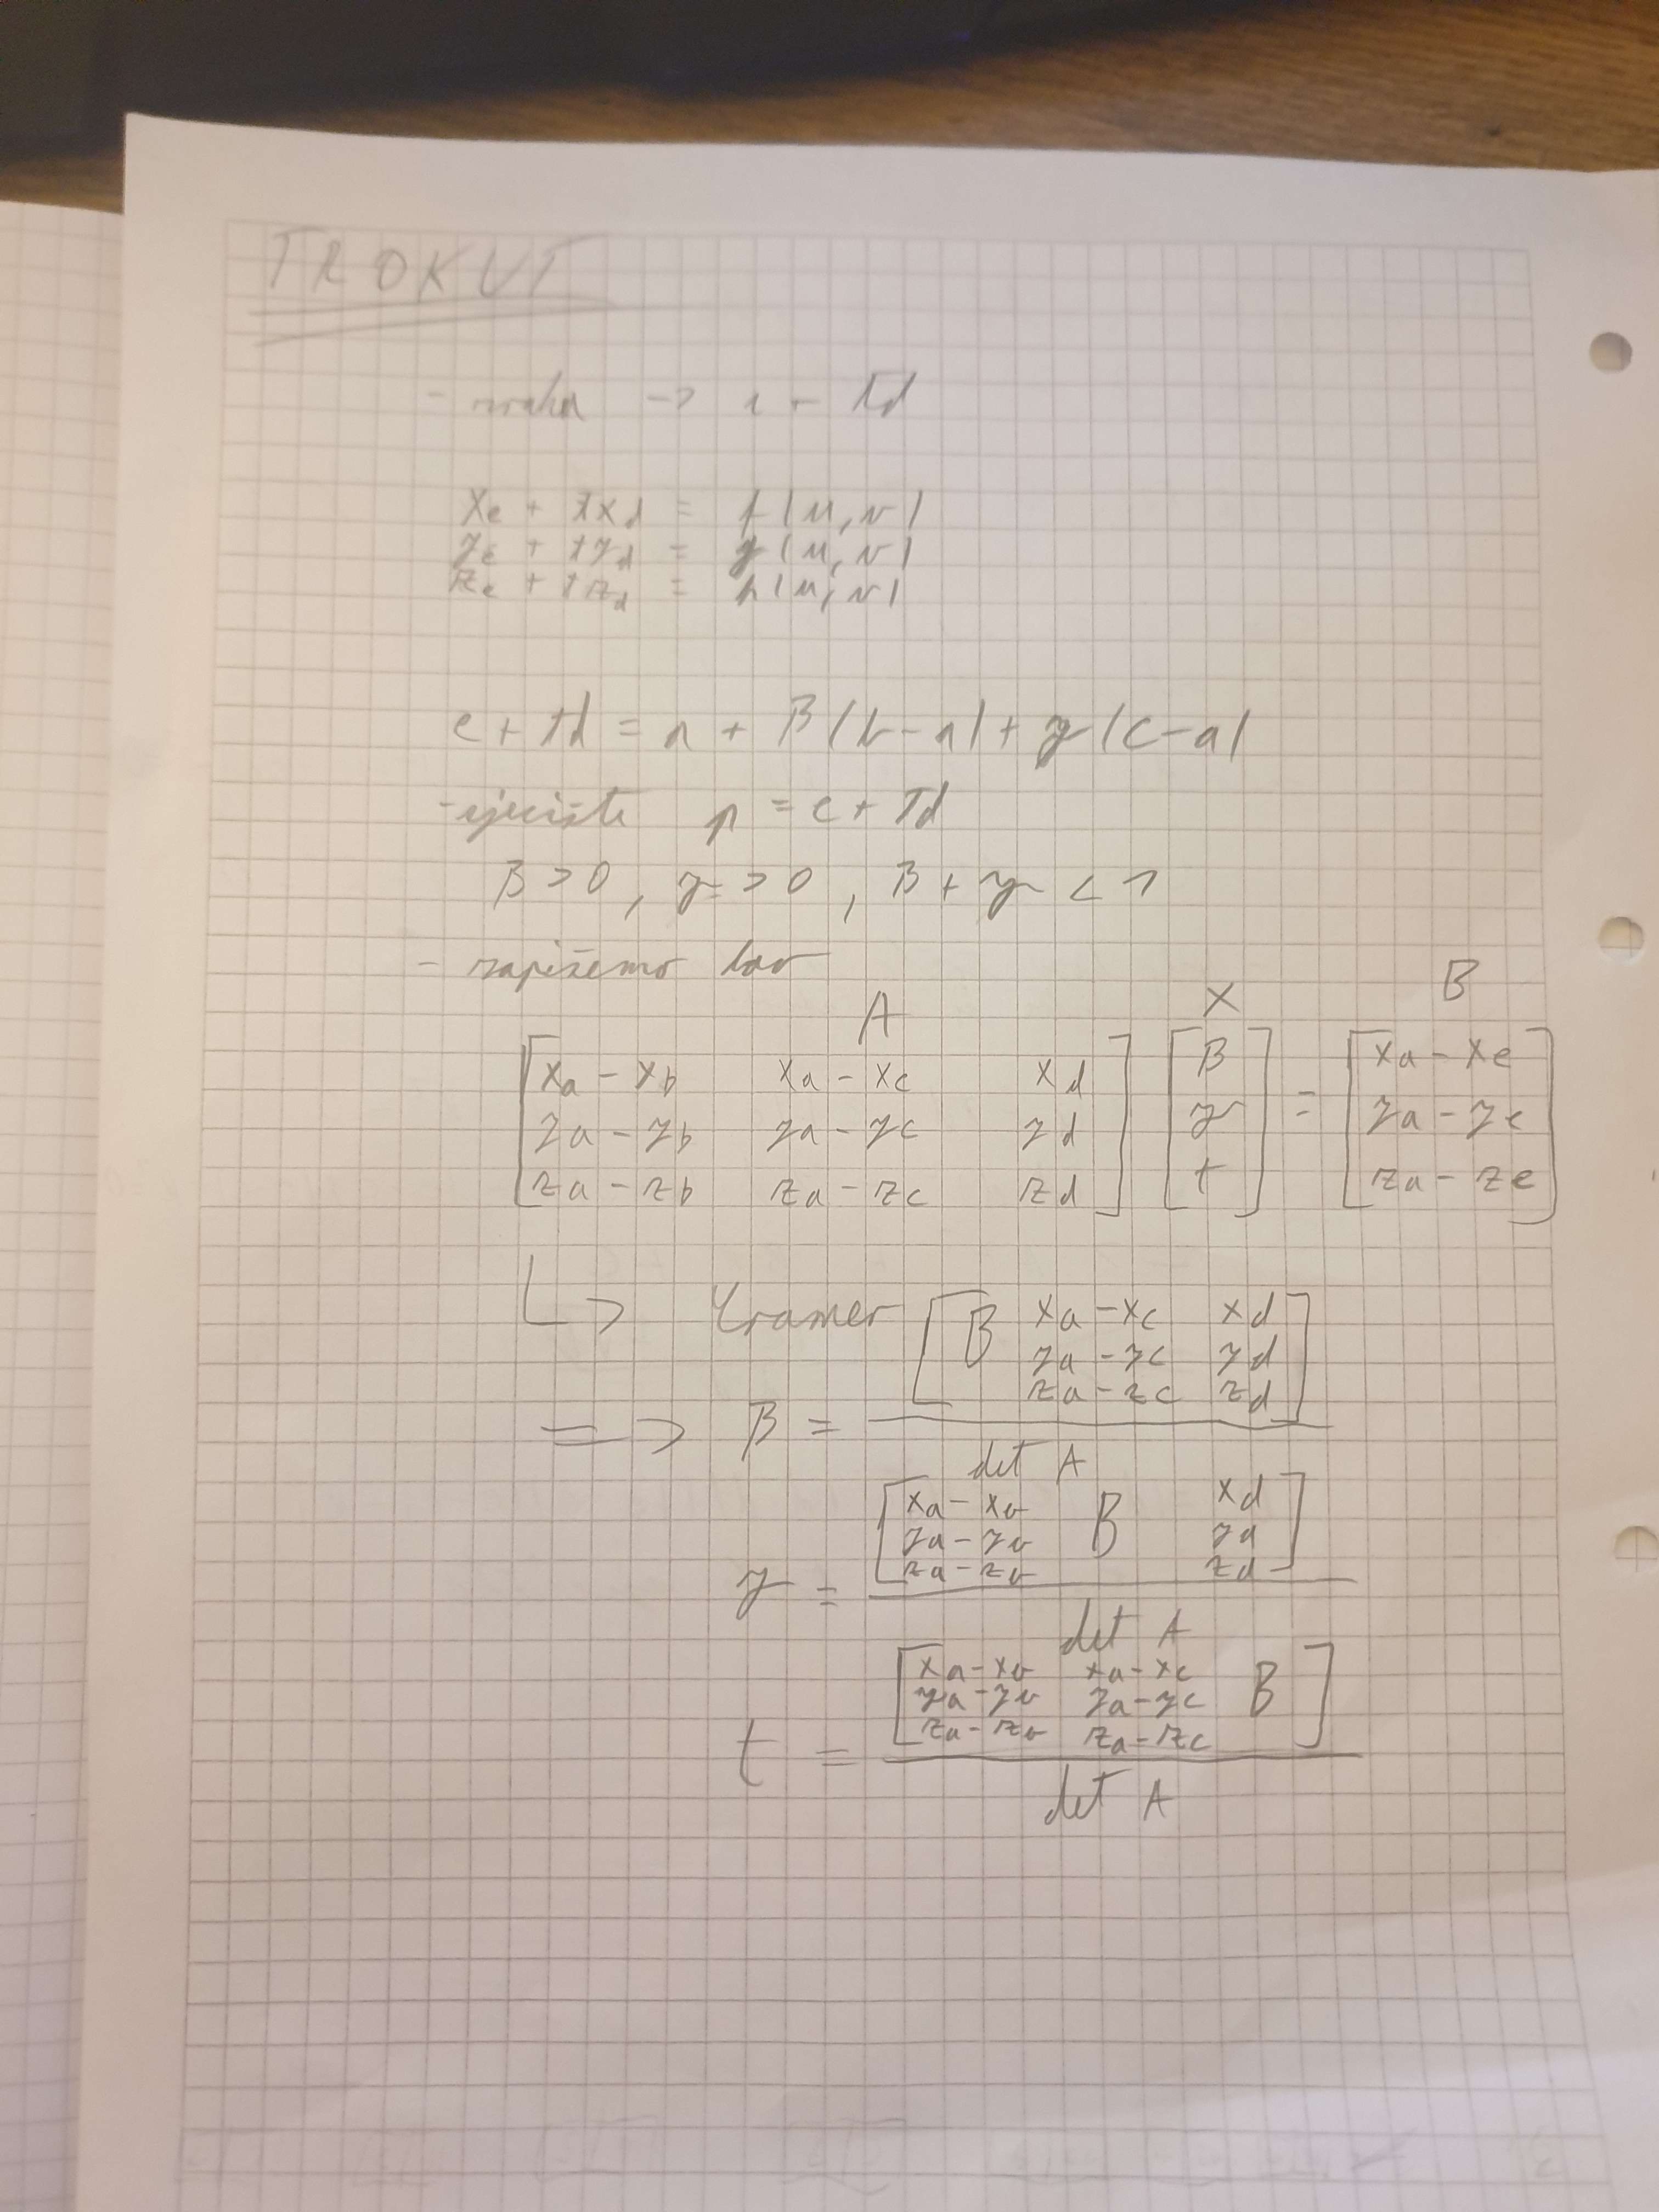 TROKUT
- zraka -> e + td
xe + txd = f(u,v)
ye + tyd = g(u,v)
ze + tzd = h(u,v)
e + td = a + β(b-a) + γ(c-a)
- sjecište p = e + td
β > 0, γ > 0, β + γ < 1
- zapišemo kao
A X B
[xa - xb xa - xc xd] [β] = [xa - xe]
[ya - yb ya - yc yd] [γ] = [ya - ye]
[za - zb za - zc zd] [t] = [za - ze]
↳ Cramer
=> β = [B xa - xc xd
ya - yc yd
za - zc zd]
det A
γ = [xa - xb B xd
ya - yb yd
za - zb zd]
det A
t = [xa - xb xa - xc B
ya - yb ya - yc
za - zb za - zc]
det A